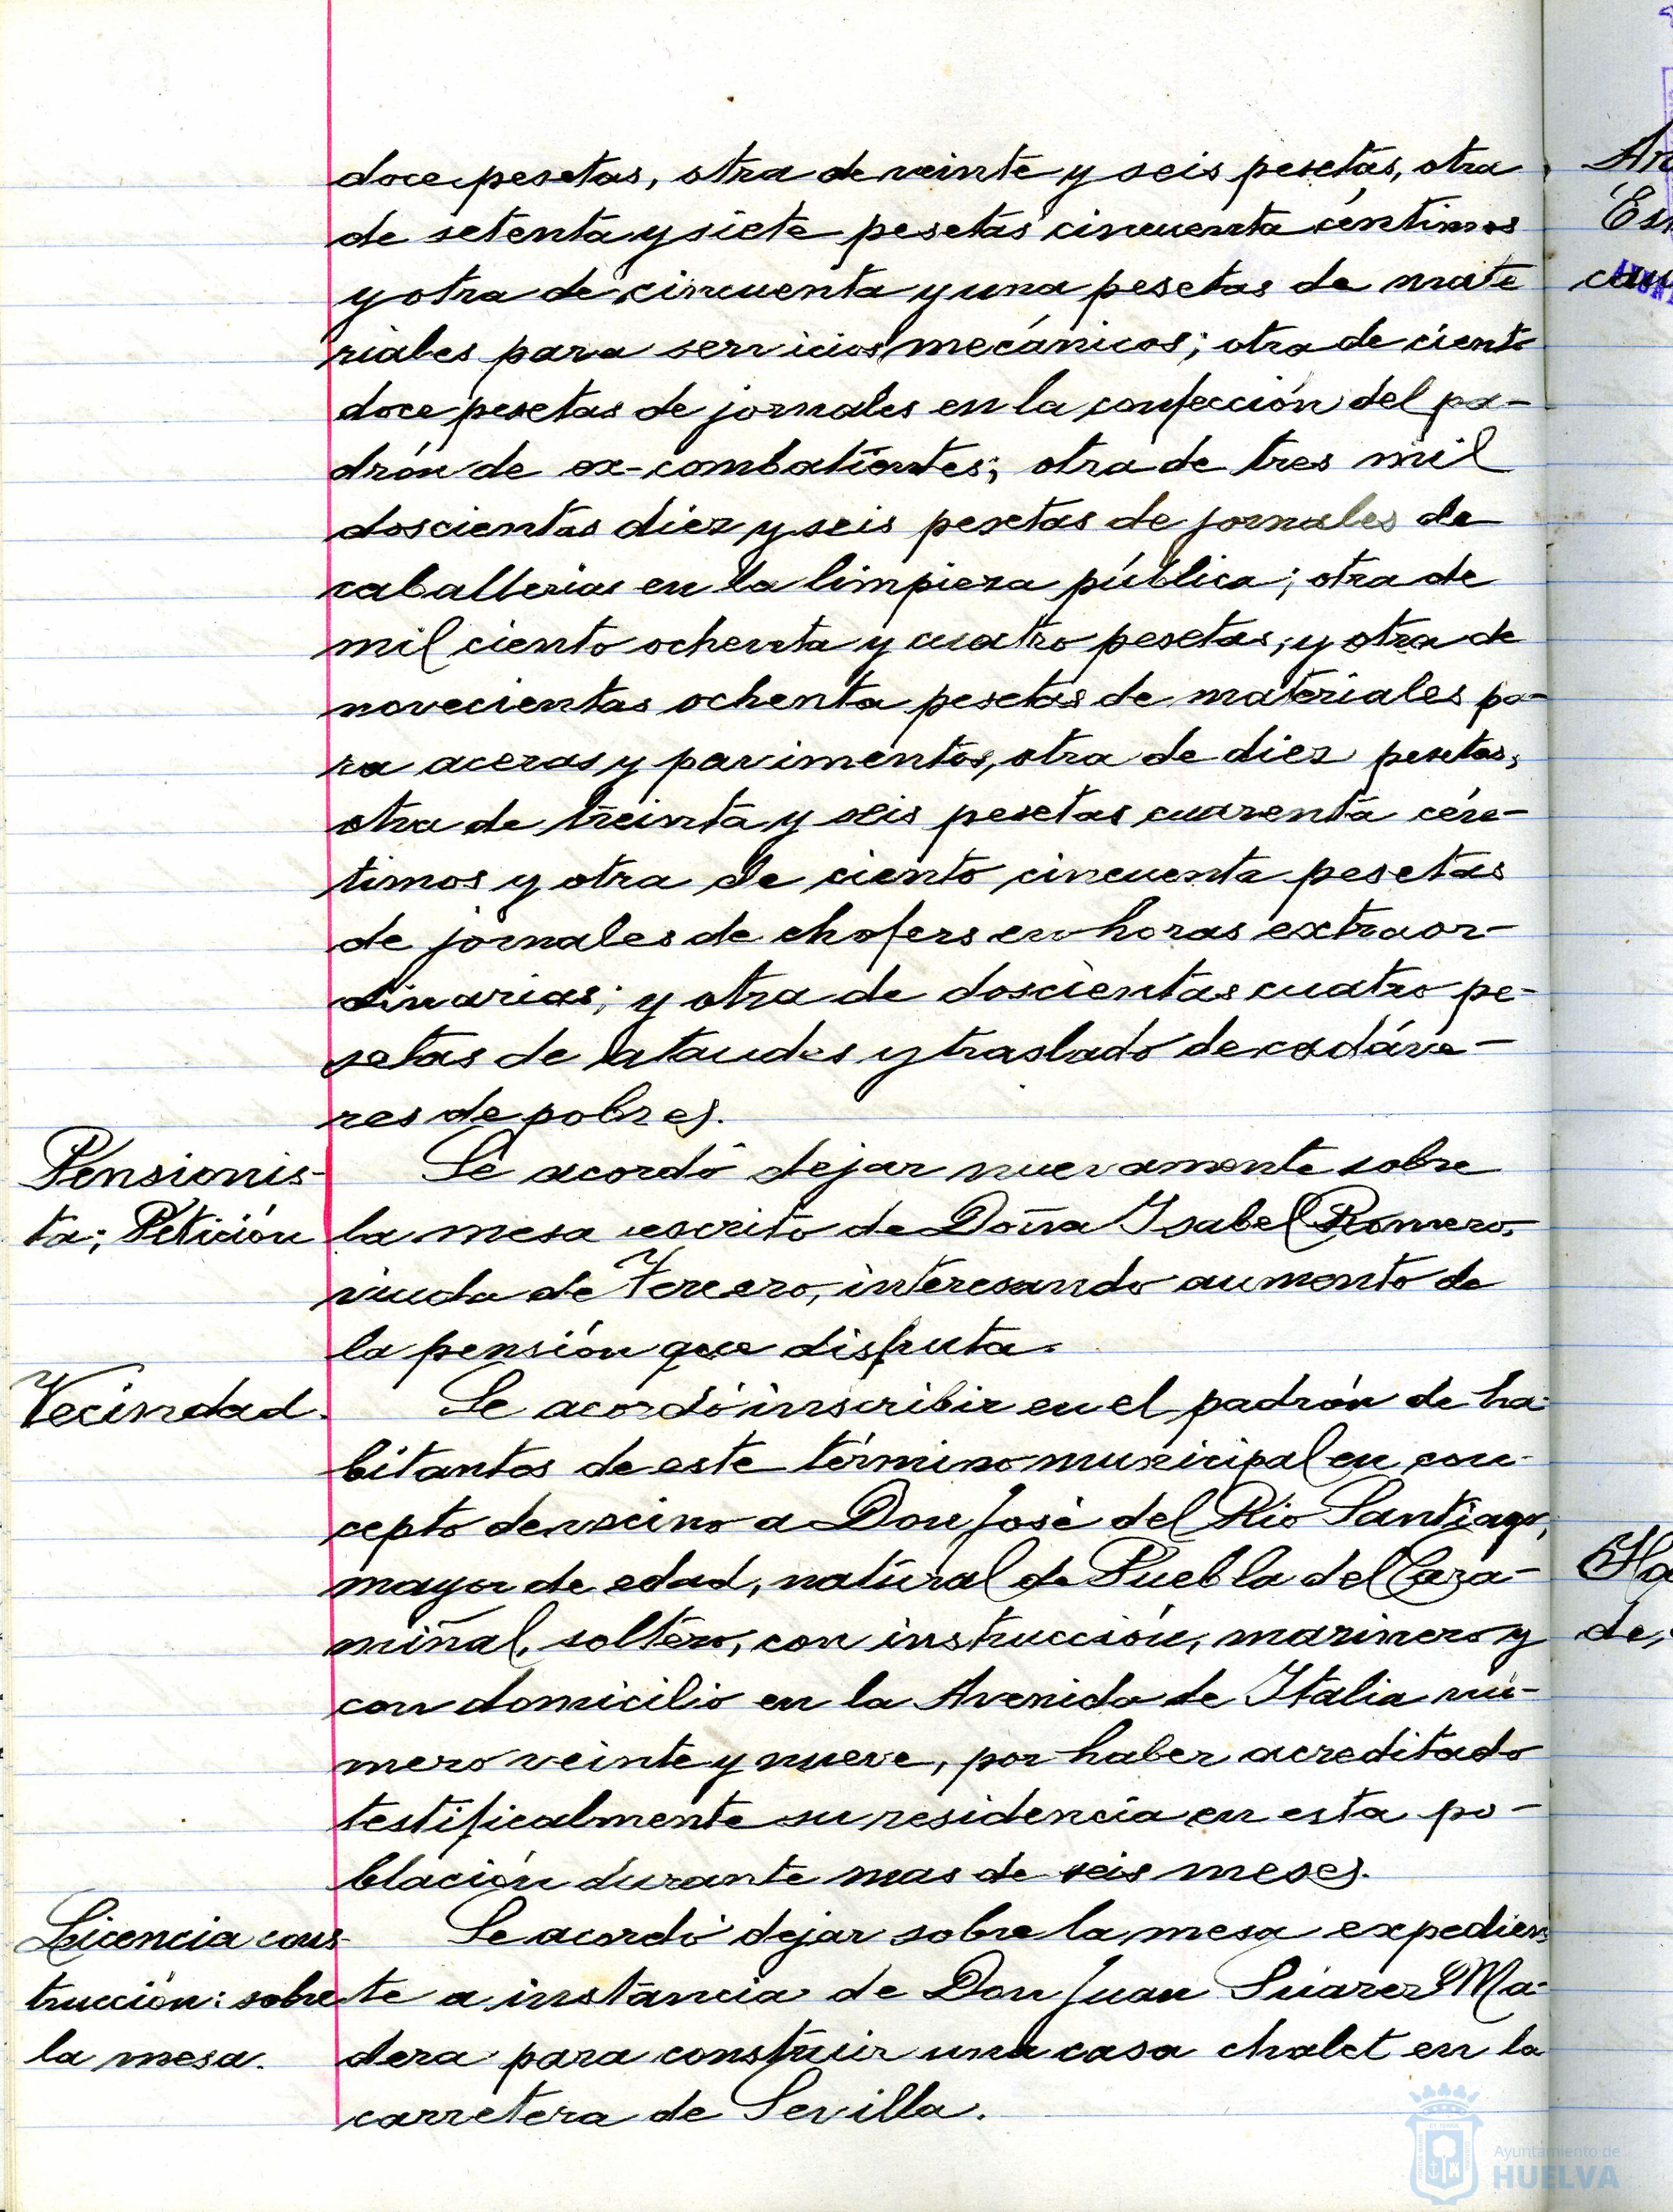 doce pesetas, otra de veinte y seis pesetas, otra
de setenta y siete pesetas cincuenta céntimos
y otra de cincuenta y una pesetas de mate
riales para servicios mecánicos; otra de ciento
doce pesetas de jornales en la confección del pa-
drón de ex-combatientes; otra de tres mil
doscientas diez y seis pesetas de jornales de
caballerias en la limpieza pública; otra de
mil ciento ochenta y cuatro pesetas; y otra de
novecientas ochenta pesetas de materiales pa-
ra aceras y pavimentos, otra de diez pesetas,
otra de treinta y seis pesetas cuarenta cén-
timos y otra de ciento cincuenta pesetas
de jornales de chofers en horas extraor-
dinarias; y otra de doscientas cuatro pe-
setas de ataudes y traslado de cadáve-
res de pobres.
Pensionis-
ta; Petición
Se acordó dejar nuevamente sobre
la mesa escrito de Doña Isabel Romero,
viuda de Tercero, interesando aumento de
la pensión que disfruta.
Vecindad.
Se acordó inscribir en el padrón de ha-
bitantes de este término municipal en con-
cepto de vecino a Don José del Rio Santiago,
mayor de edad, natural de Puebla del Cara-
miñal, soltero, con instrucción, marinero y
con domicilio en la Avenida de Italia nú-
mero veinte y nueve, por haber acreditado
testificalmente su residencia en esta po-
blación durante mas de seis meses.
Licencia cons-
trucción: sobre
la mesa.
Se acordó dejar sobre la mesa expedien-
te a instancia de Don Juan Suárez Ma-
dera para construir una casa chalet en la
carretera de Sevilla.
Ayuntamiento de
HUELVA